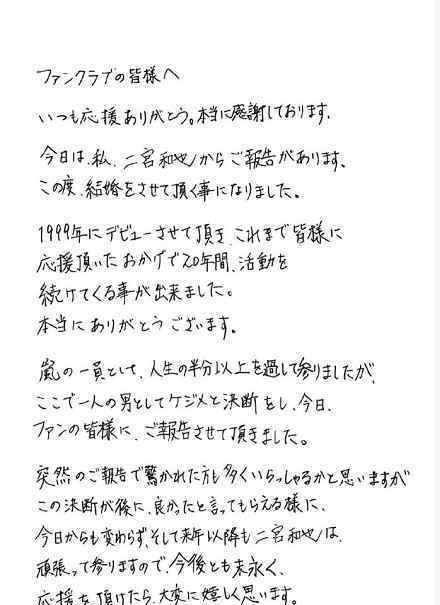 ファンクラブの皆様へ
いつも応援ありがとう。本当に感謝しております。
今日は、私、二宮和也からご報告があります。
この度、結婚をさせて頂く事になりました。
1999年にデビューさせて頂き、これまで皆様に
応援頂いたおかげで20年間、活動を
続けてくる事が出来ました。
本当にありがとうございます。
嵐の一員として、人生の半分以上を過して参りましたが、
ここで一人の男としてケジメと決断をし、今日、
ファンの皆様に、ご報告させて頂きました。
突然のご報告で驚かれた方も多くいらっしゃるかと思いますが
この決断が後に、良かったと言ってもらえる様に、
今日からも変わらず、そして来年以降も二宮和也は、
頑張って参りますので、今後とも末永く、
応援を頂けたら、大変に嬉しく思います。